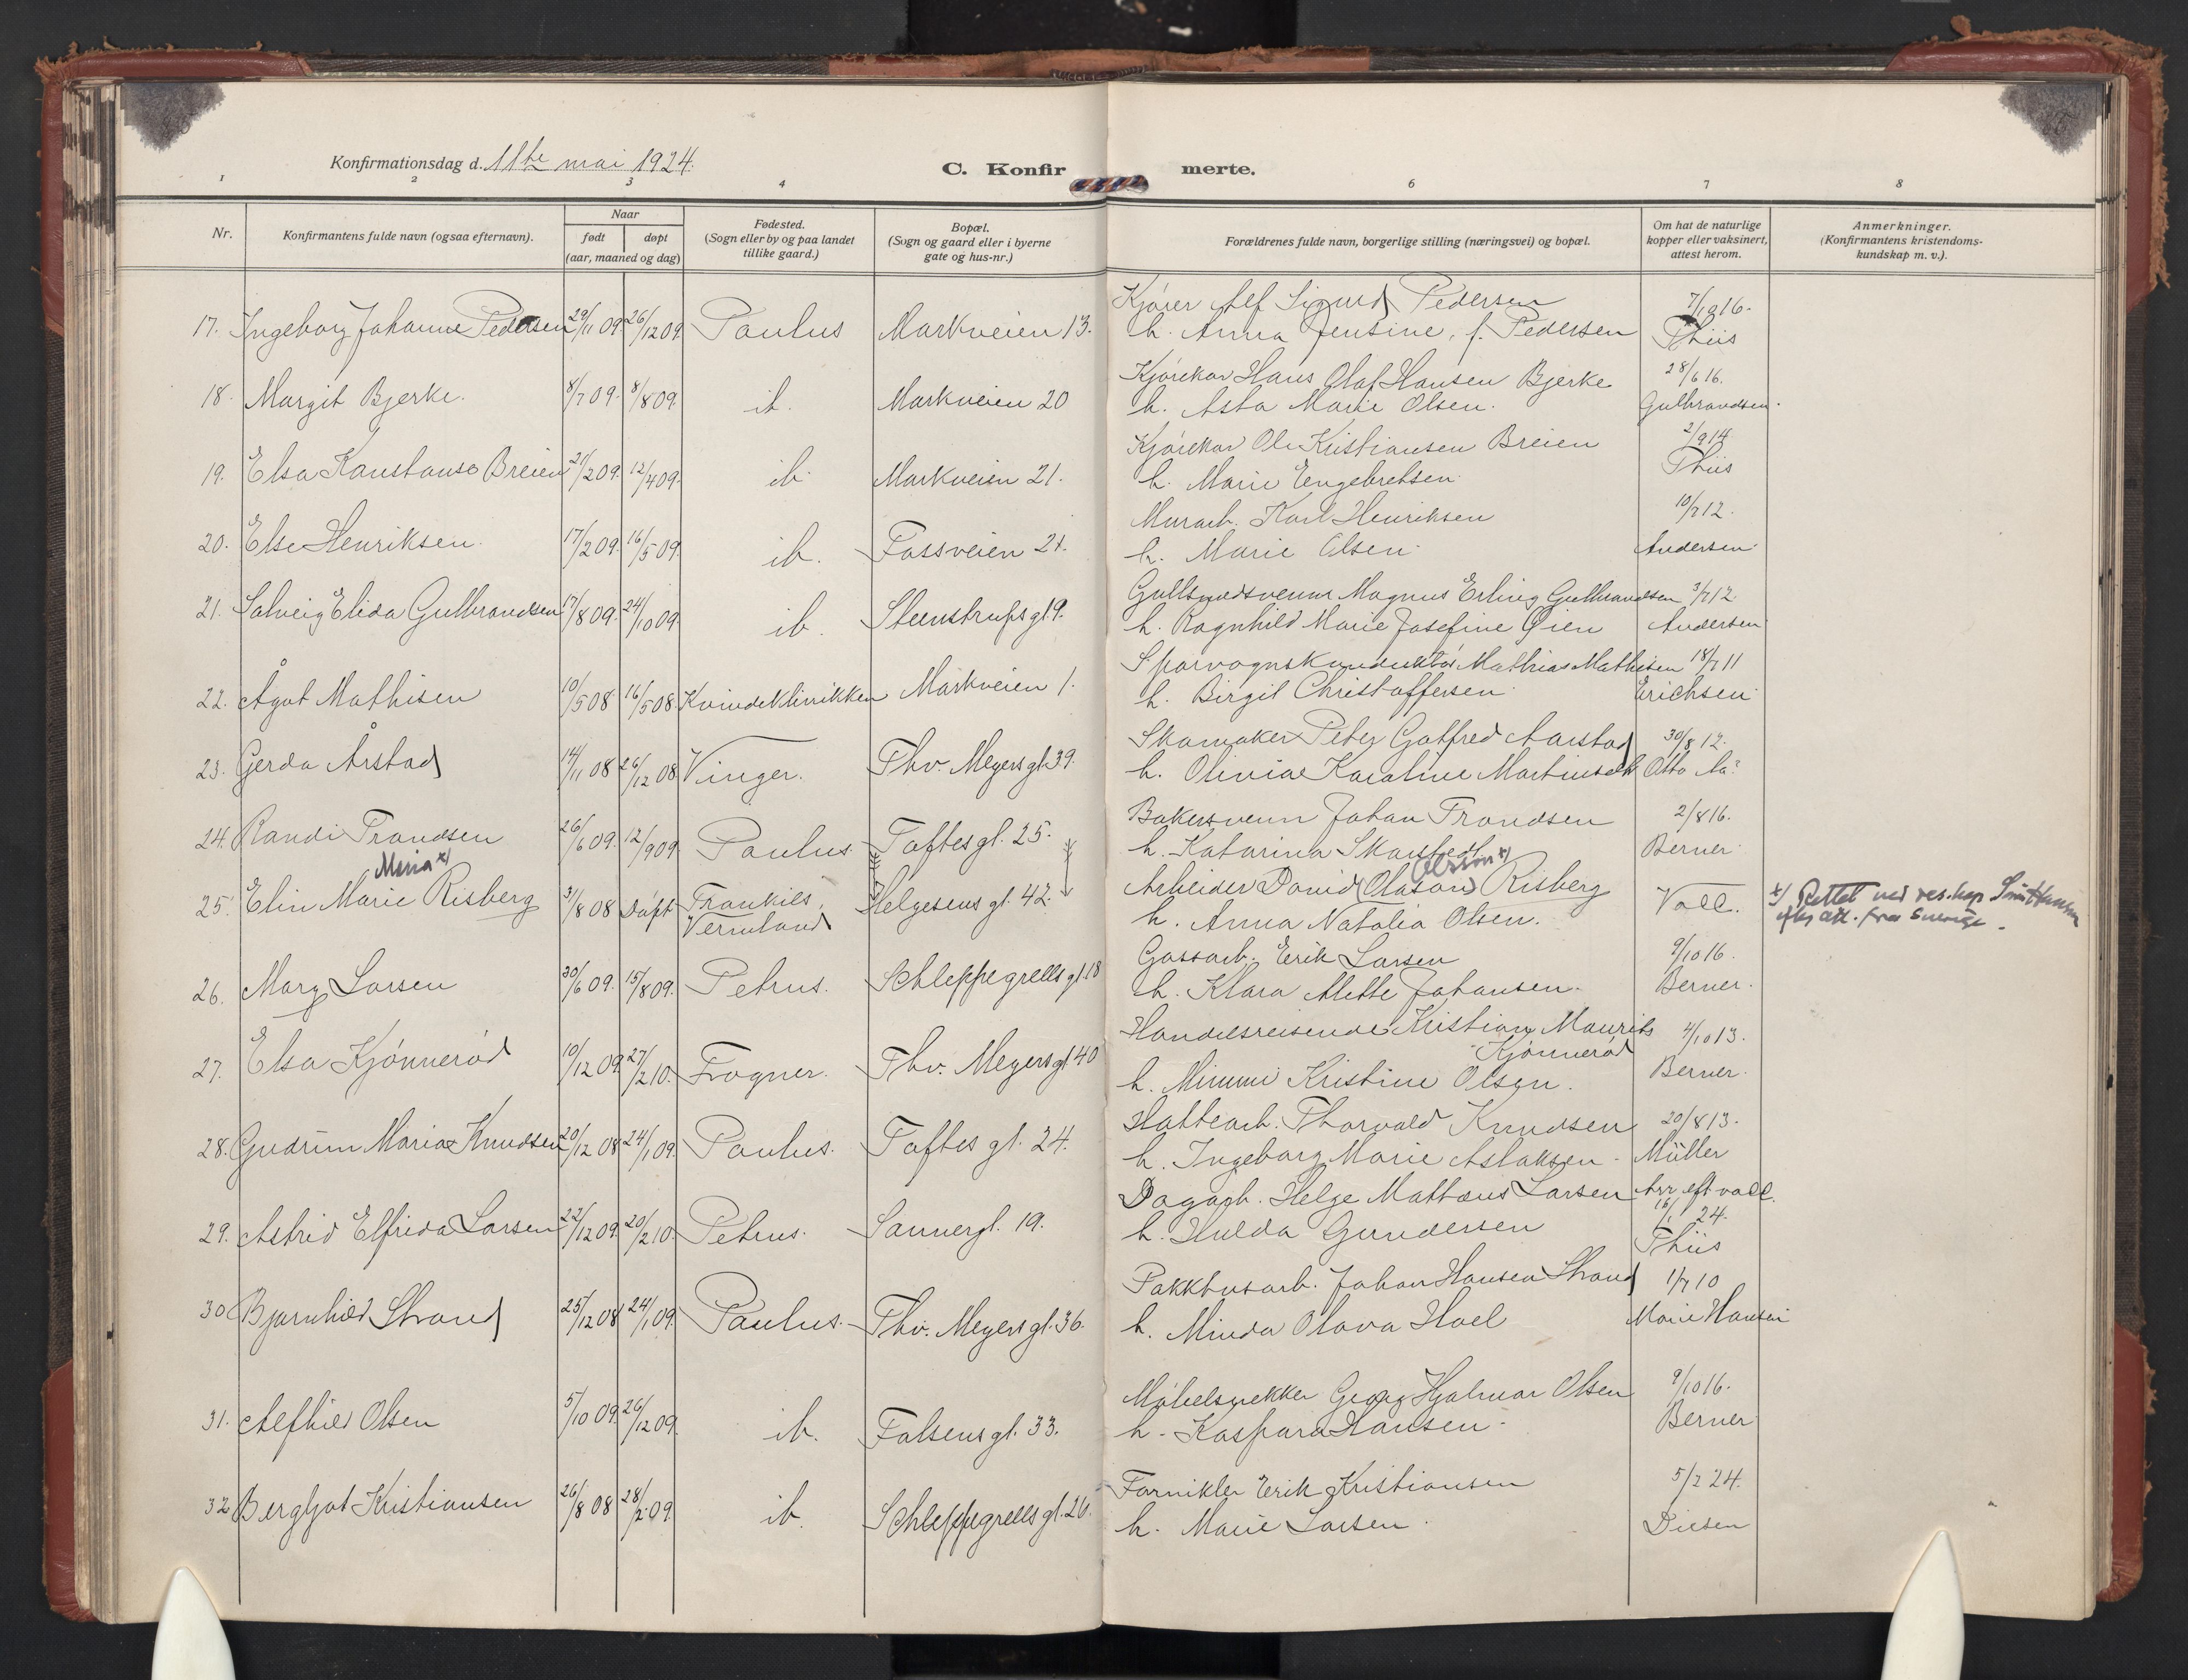 Konfirmationsdag d. 11te mai 1924.
C. Konfirmerte.
1 2 3 4 6 7 8
Nr.
Konfirmantens fulde navn (ogsaa efternavn).
Naar
født
døpt
(aar, maaned og dag)
Fødested.
(Sogn eller by og paa landet
tillike gaard.)
Bopæl.
(Sogn og gaard eller i byerne
gate og hus-nr.)
Forældrenes fulde navn, borgerlige stilling (næringsvei) og bopæl.
Om hat de naturlige
kopper eller vaksinert,
attest herom.
Anmerkninger.
(Konfirmantens kristendoms-
kundskap m. v.).
17. Ingeborg Johanne Pedersen 29/11 09 26/12 09 Paulus Markveien 13.
Kjører Alf Sigurd Pedersen 7/10 16.
h. Anna Jensine, f. Pedersen Thiis
18. Margit Bjerke. 8/7 09. 8/8 09. ib. Markveien 20
Kjørekar Hans Olaf Hansen Bjerke 28/6 16.
h. Asta Marie Olsen. Gulbrandsen.
19. Elsa Konstanse Breien 21/2 09. 12/4 09. ib. Markveien 21.
Kjørekar Ole Kristiansen Breien 2/9 14
h. Marie Engebretsen. Thiis
20. Else Henriksen. 17/2 09. 16/5 09. ib. Fossveien 21.
Murarb. Karl Henriksen 10/7 12.
h. Marie Olsen. Andersen.
21. Solveig Elida Gulbrandsen 17/8 09. 24/10 09. ib. Steenstrupsgt 9.
Gullsmedsvenn Magnus Erling Gulbrandsen 3/7 12.
h. Ragnhild Marie Josefine Øien Andersen
22. Ågot Mathisen 10/5 08 16/5 08. Kvindeklinikken Markveien 1.
Sporvognskonduktør Mathias Mathisen 18/7 11
h. Birgit Christoffersen. Erichsen.
23. Gerda Årstad 14/11 08 26/12 08 Vinger. Thv. Meyersgt. 39.
Skomaker Peter Gotfred Aarstad 30/8 12.
h. Olivia Karoline Martinsdtr Otto Aa.
24. Randi Trondsen 26/6 09. 12/9 09 Paulus Toftesgt. 25.
Bakersvenn Johan Trondsen 2/8 16.
h. Katarina Skarstedt. Berner.
Maria x)
Olsson x)
25. Elin Marie Risberg 31/8 08 Døpt Trankils, Vermland Helgesens gt. 42.
Arbeider David (Olason) Risberg Vacc.
h. Anna Natalia Olsen.
x) Rettet ved res. kap. Smitt Hansen
efter att. fra Sverige.
26. Mary Larsen 30/6 09. 15/8 09. Petrus. Schleppegrells gt. 18
Gassarb. Erik Larsen 9/10 16.
h. Klara Mette Johansen. Berner.
27. Elsa Kjønnerød 10/12 09. 27/2 10. Frogner. Thv. Meyers gt 40
Handelsreisende Kristian Maurits 4/10 13.
Kjønnerød
h. Mimmi Kristine Olsen. Berner.
28. Gudrun Maria Knudsen 20/12 08 24/1 09. Paulus. Toftes gt. 24.
Hattearb. Thorvald Knudsen 20/8 13.
h. Ingeborg Marie Aslaksen. Müller
29. Astrid Elfrida Larsen 22/12 09. 20/2 10. Petrus. Sannergt. 19.
Dagarb. Helge Mattæus Larsen Arr eft vacc.
h. Hulda Gundersen 16/1 24.
Thiis
30 Bjarnhild Strand 25/12 08 24/1 09. Paulus. Thv. Meyers gt. 36.
Pakkhusarb. Johan Hansen Strand 1/7 10
h. Minda Olava Hoel Marie Hansen
31. Alfhild Olsen 5/10 09. 26/12 09. ib. Falsens gt. 33.
Møbelsnekker Georg Hjalmar Olsen 9/10 16.
h. Kaspara Hansen. Berner
32 Bergljot Kristiansen 26/8 08 28/2 09. ib. Schleppegrells gt. 26.
Fornikler Erik Kristiansen 5/2 24.
h. Marie Larsen. Diesen